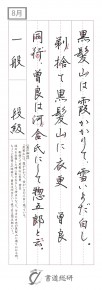 8月
黒髪山は霞かゝりて、雪いまだ白し。
剃捨て黒髪山に衣更　曽良
同行曽良は河合氏にして惣五郎と云。
一般　段級
書道総研